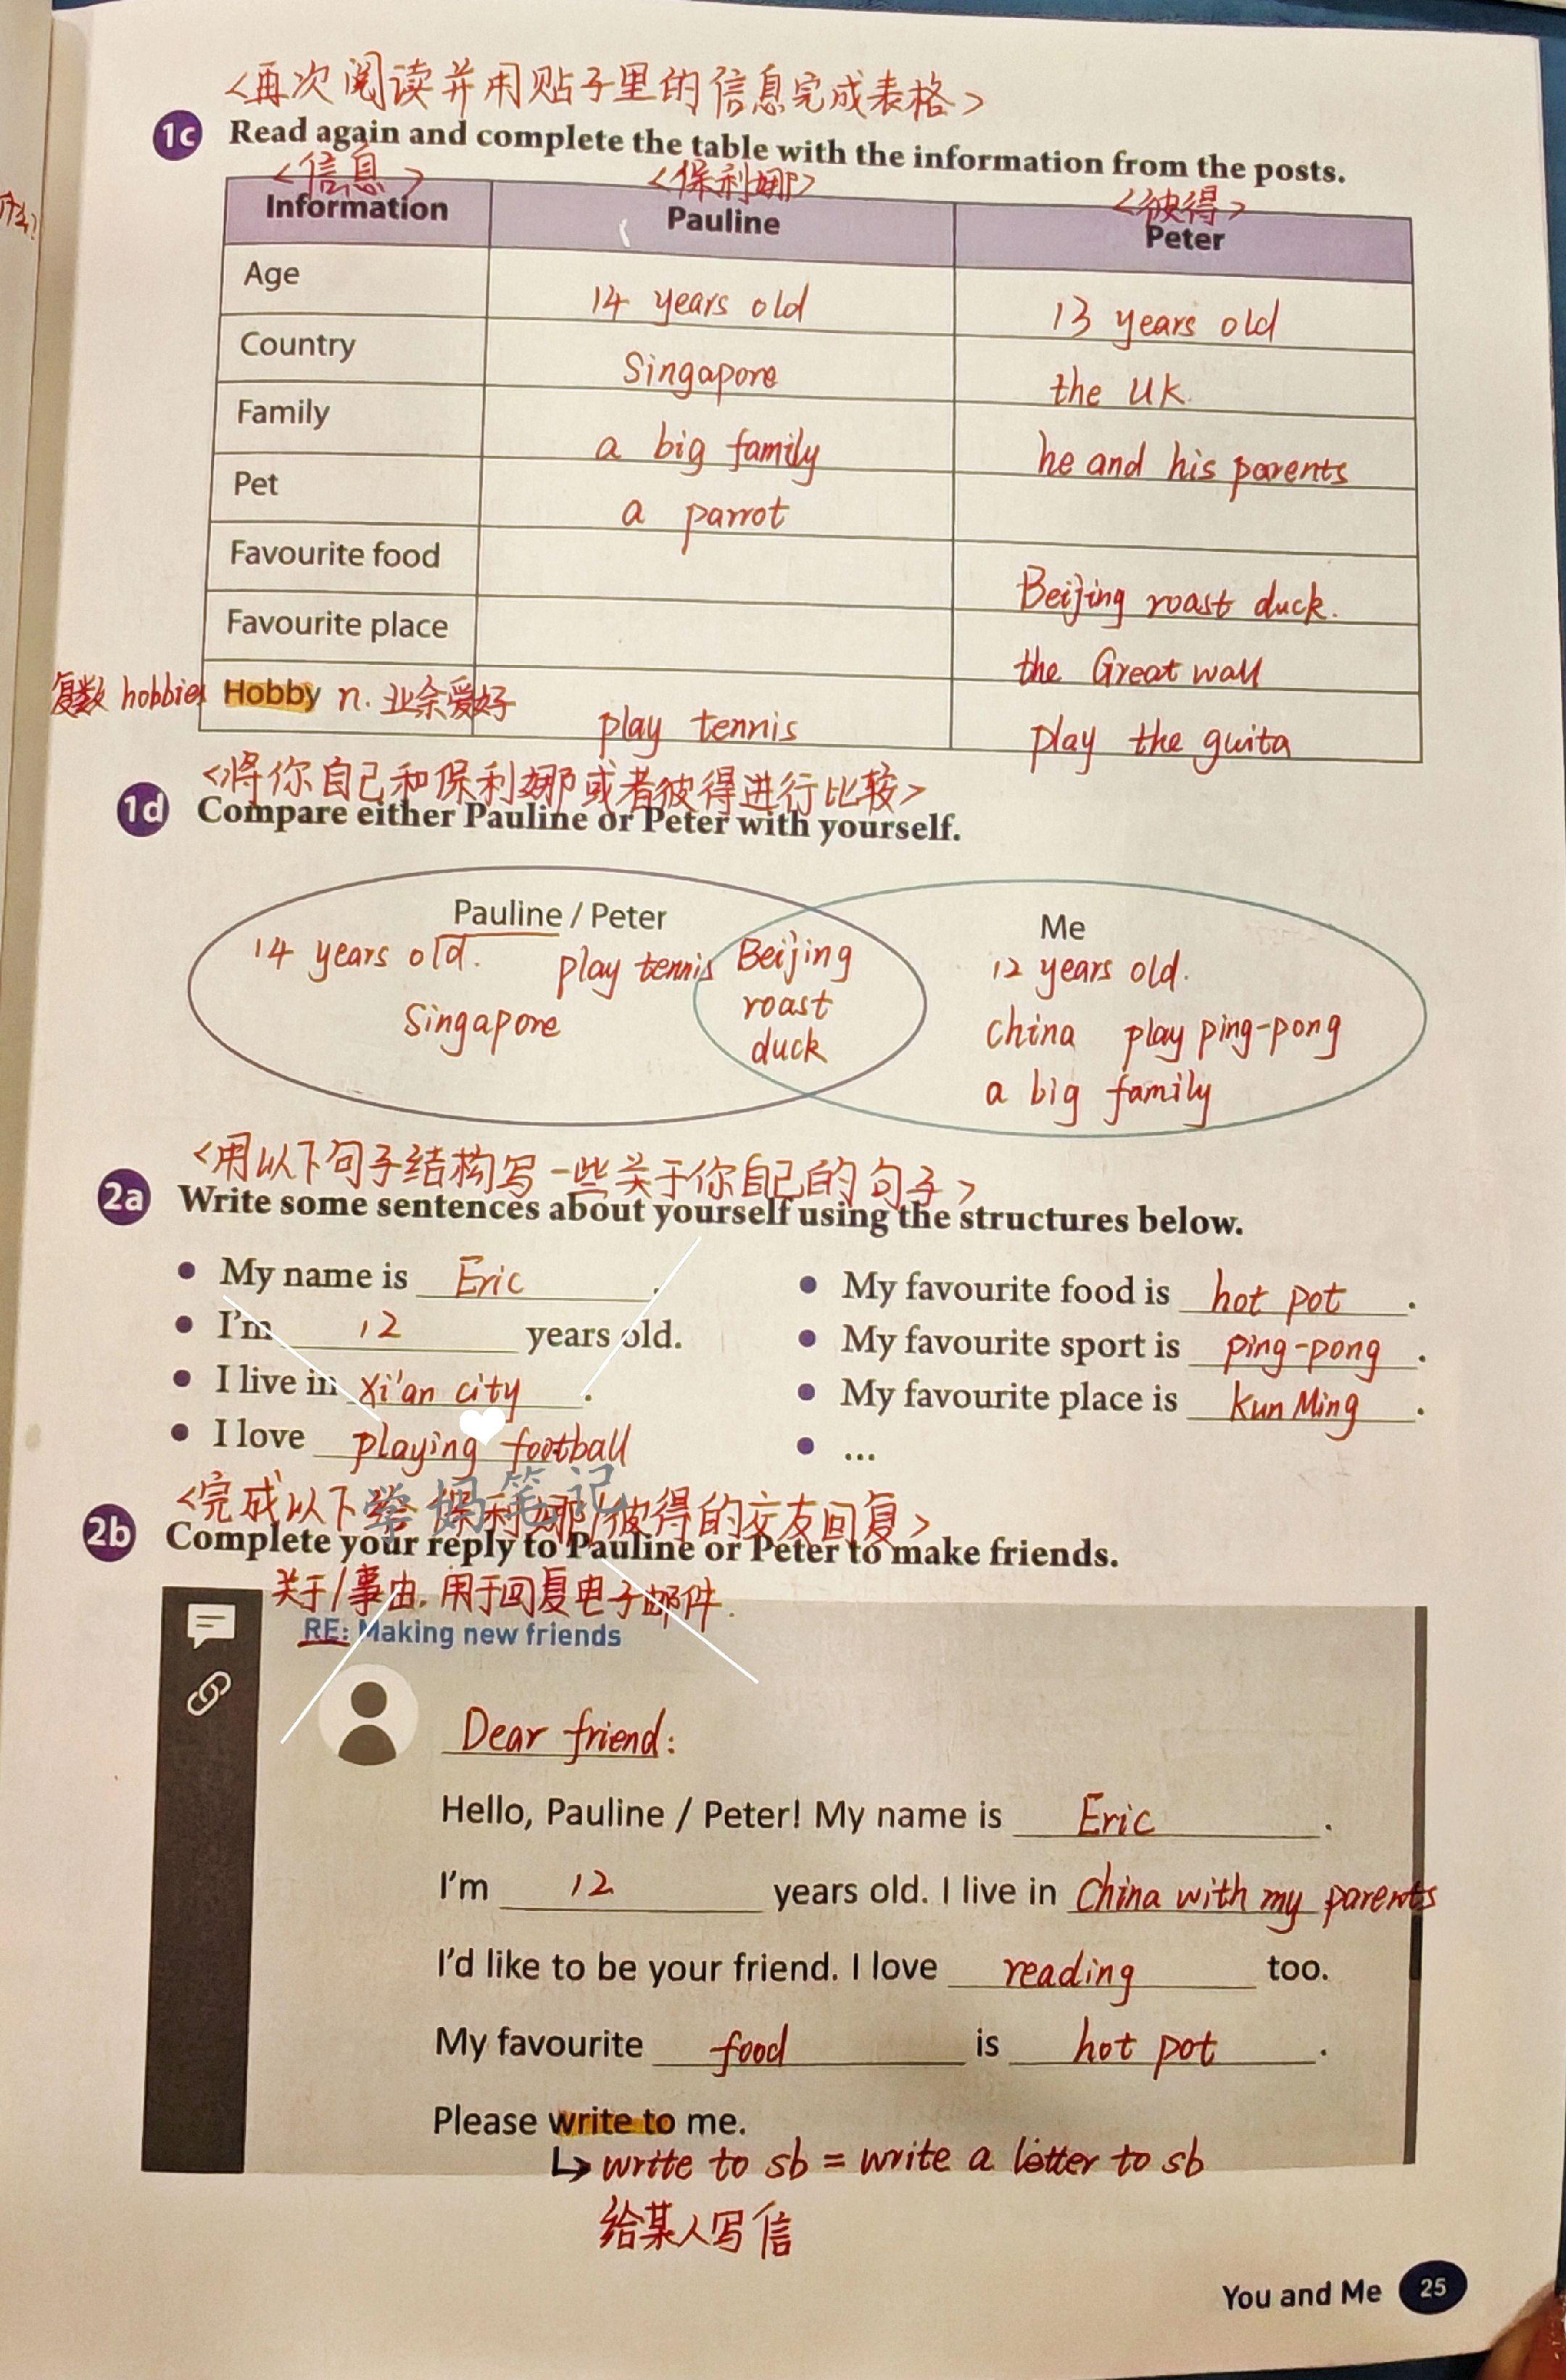 <再次阅读并用贴子里的信息完成表格>
1c Read again and complete the table with the information from the posts.
<信息> <保利娜> <彼得>
Information Pauline Peter
Age 14 years old 13 years old
Country Singapore the UK.
Family a big family he and his parents
Pet a parrot
Favourite food Beijing roast duck.
Favourite place the Great wall
复数 hobbies Hobby n. 业余爱好 play tennis play the guita
<将你自己和保利娜或者彼得进行比较>
1d Compare either Pauline or Peter with yourself.
Pauline / Peter Me
14 years old. play tennis Beijing 12 years old.
Singapore roast china play ping-pong
duck a big family
<用以下句子结构写一些关于你自己的句子>
2a Write some sentences about yourself using the structures below.
• My name is Eric. • My favourite food is hot pot.
• I'm 12 years old. • My favourite sport is ping-pong.
• I live in Xi'an city. • My favourite place is Kun Ming.
• I love playing football • ...
学妈笔记
<完成以下给保利娜/彼得的交友回复>
2b Complete your reply to Pauline or Peter to make friends.
关于/事由,用于回复电子邮件.
RE: Making new friends
Dear friend:
Hello, Pauline / Peter! My name is Eric.
I'm 12 years old. I live in China with my parents
I'd like to be your friend. I love reading too.
My favourite food is hot pot.
Please write to me.
↳ write to sb = write a letter to sb
给某人写信
You and Me 25